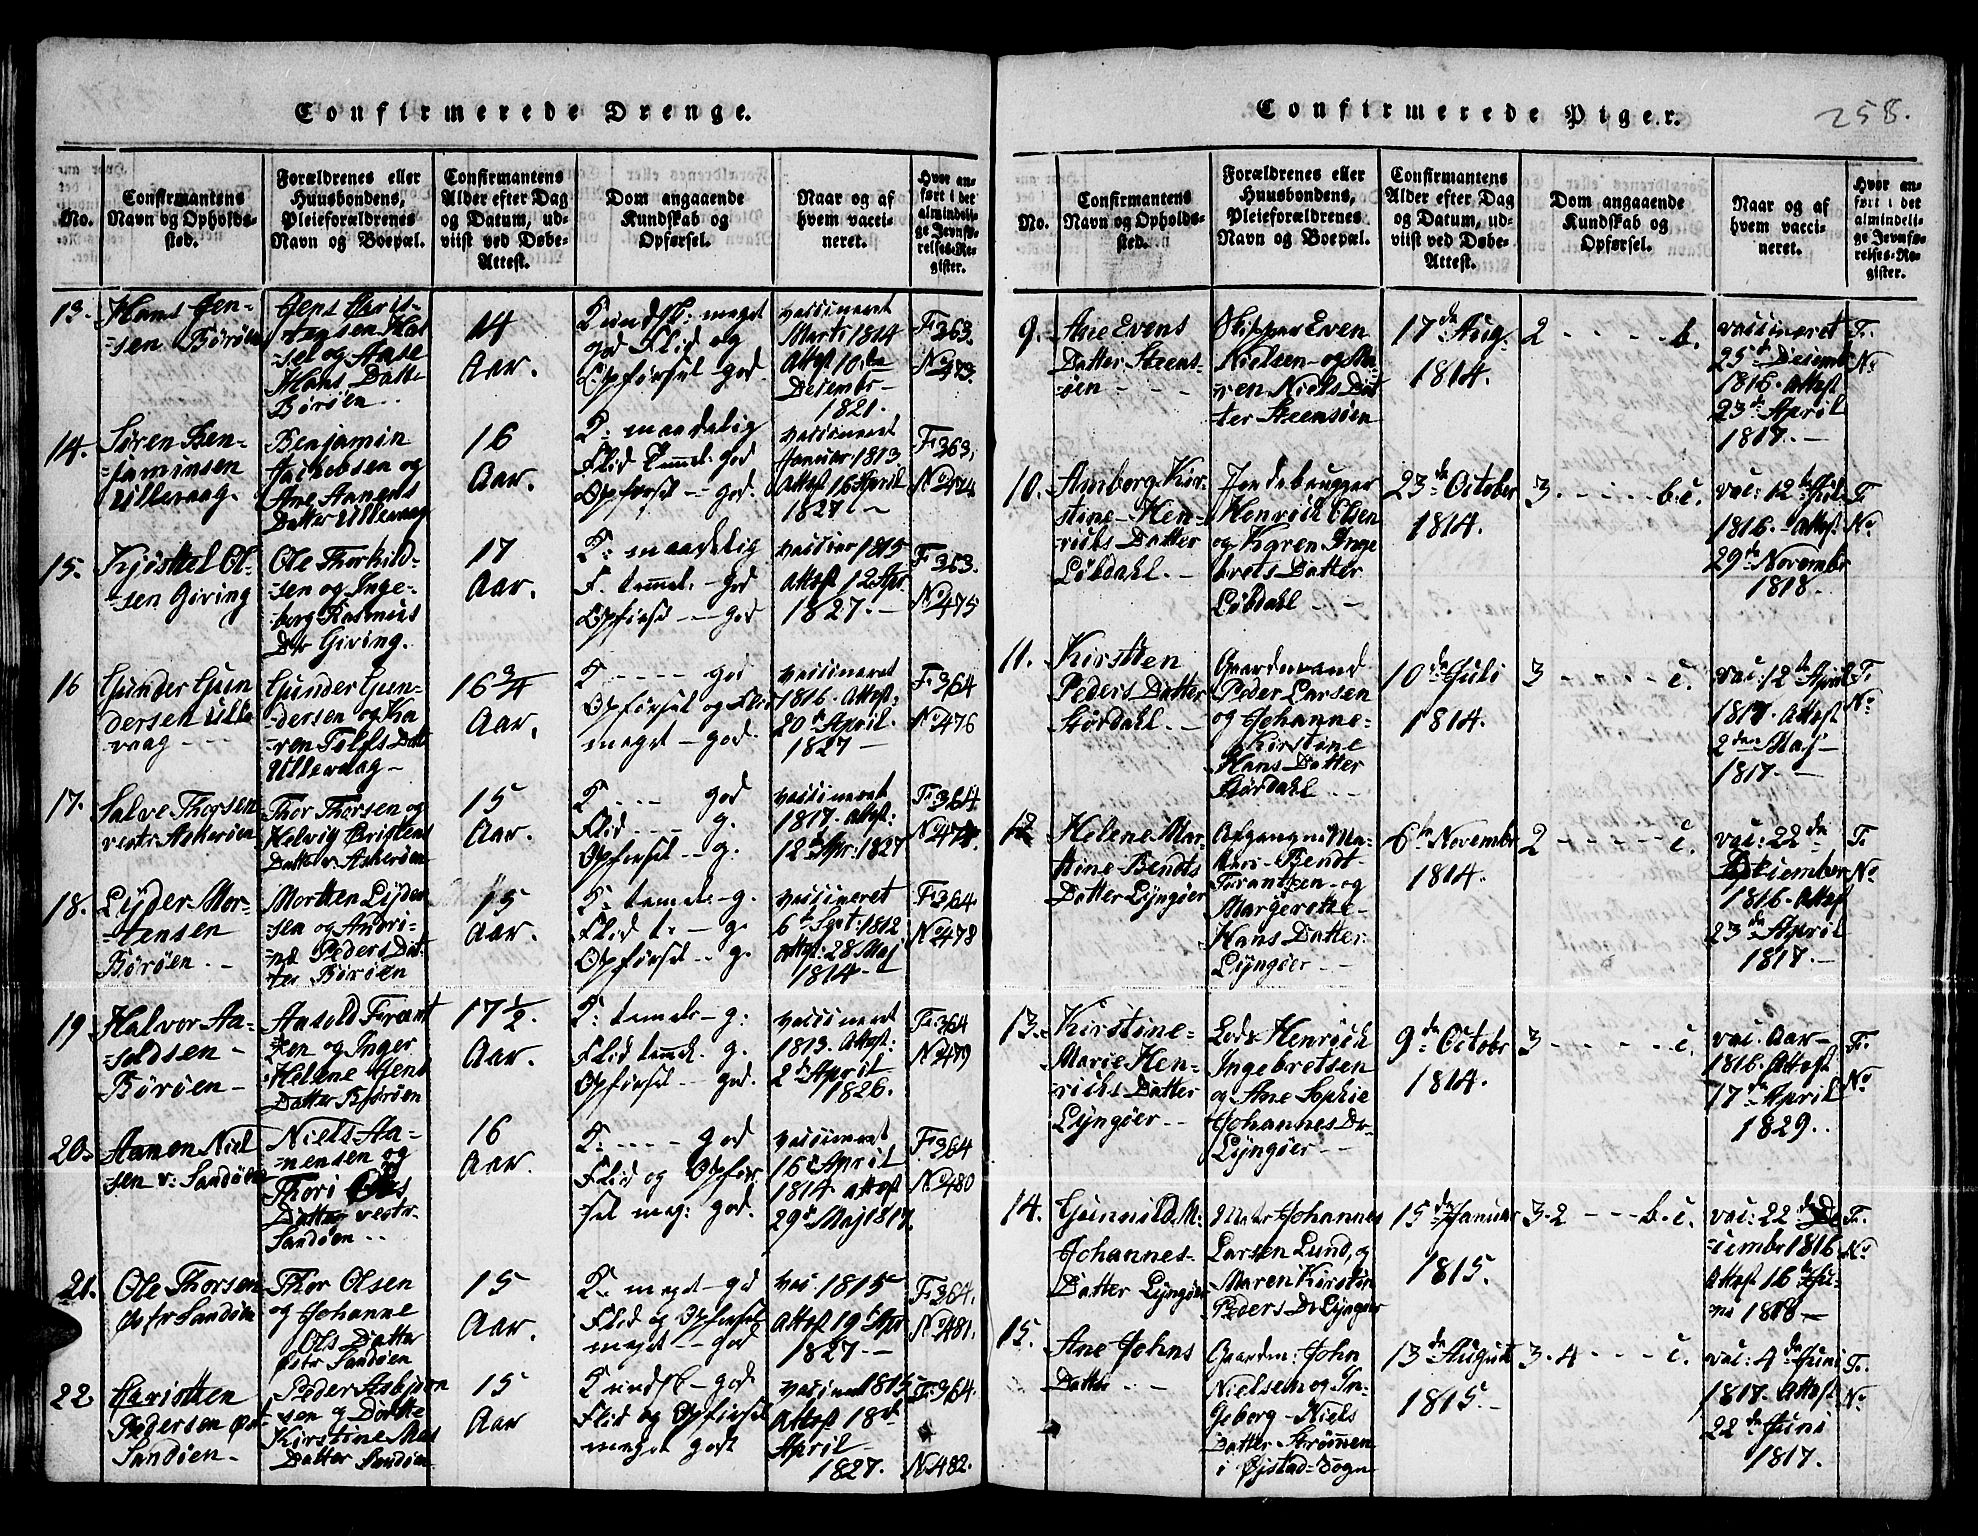 Confirmerede Drenge.
No.
Confirmantens
Navn og Opholds-
sted.
Forældrenes eller
Huusbondens,
Pleieforældrenes
Navn og Boepæl.
Confirmantens
Alder efter Dag
og Datum, ud-
viist ved Døbe-
Attest.
Dom angaaende
Kundskab og
Opførsel.
Naar og af
hvem vacci-
neret.
Hvor an-
ført i det
almindeli-
ge Jevnfø-
relses-Re-
gister.
13.
Hans Jen-
sen Børøen
Jens Chris-
tensen Has
sel og Aase
Hans Datte
Børøen
14
Aar.
Kundsk: meget
god Flid og
Opførsel god.
vaccineret
Marti 1814
Attest 10de
Decembr
1821.
F: 363.
No 473.
14.
Søren Ben-
jaminsen
Ullevaag.
Benjamin
Jacobsen og
Ane Aanens
Datter Ullevaag
16
Aar.
K: maadelig
Flid temel. God
Opførsel -- god.
vaccineret
Januar 1813
Attest 16 April
1827
F: 363,
No 474
15.
Kjøstel Ol-
sen Giving
Ole Thorkild-
sen og Inge-
borg Rasmus
Dtr Giving.
17
Aar.
K: maadelig
F. temel. - God
Opførsel -- God
vaccier 1815
Attest 12 Apr.
1827. -
F: 363.
No 475
16
Gunder Gun
dersen Ulle
vaag - -
Gunder Gun-
dersen og Ka
ren Tolfs Dat
Ullevaag -
16 3/4
Aar.
K - - - - God
Opførsel og Flid
meget - god.
vaccineret
1816. Attest:
20de April.
1827 -
F: 364
No 476
17.
Salve Thorsen
vestr Askerøen
Thor Thorsen og
Helvig Christens
Datter Askerøen
15
Aar.
K - - - - God
Flid - - - - g.
Opførsel -- g:
vaccineret
1817. Attest:
12de Apr: 1827
F: 364
No 477.
18.
Lyder Mor-
tensen
Børøen. -
Mortten Lyder
sen og Andri-
ne Peders Dat-
ter Børøen
15
Aar.
K: temele - g.
Flid t: - g.
Opførsel -- g.
vaccineret
6te Sept: 1812
Attest: 28 Maj
1814 -
F: 364.
No 478
19
Halvor Aa-
soldsen -
Børøen -
Aasold Frant
zen og Inger
Helene Jens
Datter Børøen
17 1/2.
Aar.
K: temele - g:
Flid temel. g.
Opførsel -- god.
vaccineret
1813. Attest:
2de April
1826.
F: 364
No 479
20.
Aanen Niel
sen v: Sandøen
Niels Aa-
nensen og
Thori Ols
Datter vestr-
Sandøen - -
16
Aar.
K: - - - - God
Flid og Opfør-
sel meg: god.
vaccineret
16de April
1814. Attest
29de Maj 1817.
F: 364
No 480
21.
Ole Thorsen
østr Sandøen
Thor Olsen
og Johanne
Ols Datter
østr Sandøen
15
Aar.
K: meget - gd
Flid og Opførsel
meget -- god
vac 1815
Attest 19de Apr
1827 -
F: 364.
No 481.
22
Christen
Pedersen øst
Sandøen -
Peder Asbjørn
sen og Dorthe
Kirstine Mas
Datter Sandøen
15
Aar
Kundsk - god
Flid og Opførsel
meget godt
vaccineret 1815
Attest 18de
April -
1827.
F: 364.
No 482.
Confirmerede Piger.
258.
No.
Confirmantens
Navn og Opholds-
sted.
Forældrenes eller
Huusbondens,
Pleieforældrenes
Navn og Boepæl.
Confirmantens
Alder efter Dag
og Datum, ud-
viist ved Døbe-
Attest.
Dom angaaende
Kundskab og
Opførsel.
Naar og af
hvem vacci-
neret.
Hvor an-
ført i det
almindeli-
ge Jevnfø-
relses-Re-
gister.
9.
Ane Evens
Datter Steens-
øen - - -
Skipper Even
Nielsen - og Ma-
ren Niels Dat
ter Steensøen
17de Aug.
1814.
2 - - - - - b.
vaccineret
25de Decemb
1816. Attest
23de April
1817. -
F:
No
10.
Amborg Kir-
stine - Hen-
richs Datter
Løbdahl. -
Jordebrugger
Henrich Olsen
og Karen Inge
brets Datter
Løbdahl - -
23de October
1814.
3. - - - - b. c.
vac: 12te Juli
1816. Attest
29de Novembr
1818.
F:
No
11.
Kirstien
Peders Datter
Størdahl. -
Gaardmand
Peder Larsen
og Johanne-
Kirstine
Hans Datter
Størdahl - -
10de Juli
1814.
3 - - - - - c.
vac: 12de April
1817. Attest
2den Maj -
1817. -
F:
No
12
Helene Mar-
thine - Bendts
Datter Lyngøer
Afgangne Ma-
ters - Bendt
Frantzen - og
Margerethe-
Hans Datter
Lyngøer - -
6te Novembr
1814.
2 - - - - - c.
vac: 22de
December
1816. Attest
23de April
1817. -
F:
No
13.
Kirstine-
Marie Hen-
richs Datter
Lyngøer - -
Lods Henrich
Ingebretsen
og Ane Sophie
Johannes Dr-
Lyngøer - -
9de Octobr
1814.
3 - - - - - c.
vac. Aar -
1816. Attest
17de April
1829. .
F:
No
14.
Gunnild M:
Johannes-
Datter Lyngøer
Mater Johannes
Larsen Lund, og
Maren Kirstin
Peders Dr Lyngøer
15de Januar
1815.
3-2 - - - b. c.
vac: 22de De-
cembr 1816
Attest 16de Ju-
ni 1818 -
F:
No
15.
Ane Johns
Datter - -
Gaardm: John
Nielsen og In-
geborg - Niels
Datter Strømmen
i Øjstad-Sogn
13de August
1815. -
3-4 - - - c.
vac: 4de Juni
1817. Attest
22de Juni
1817.
F:
No